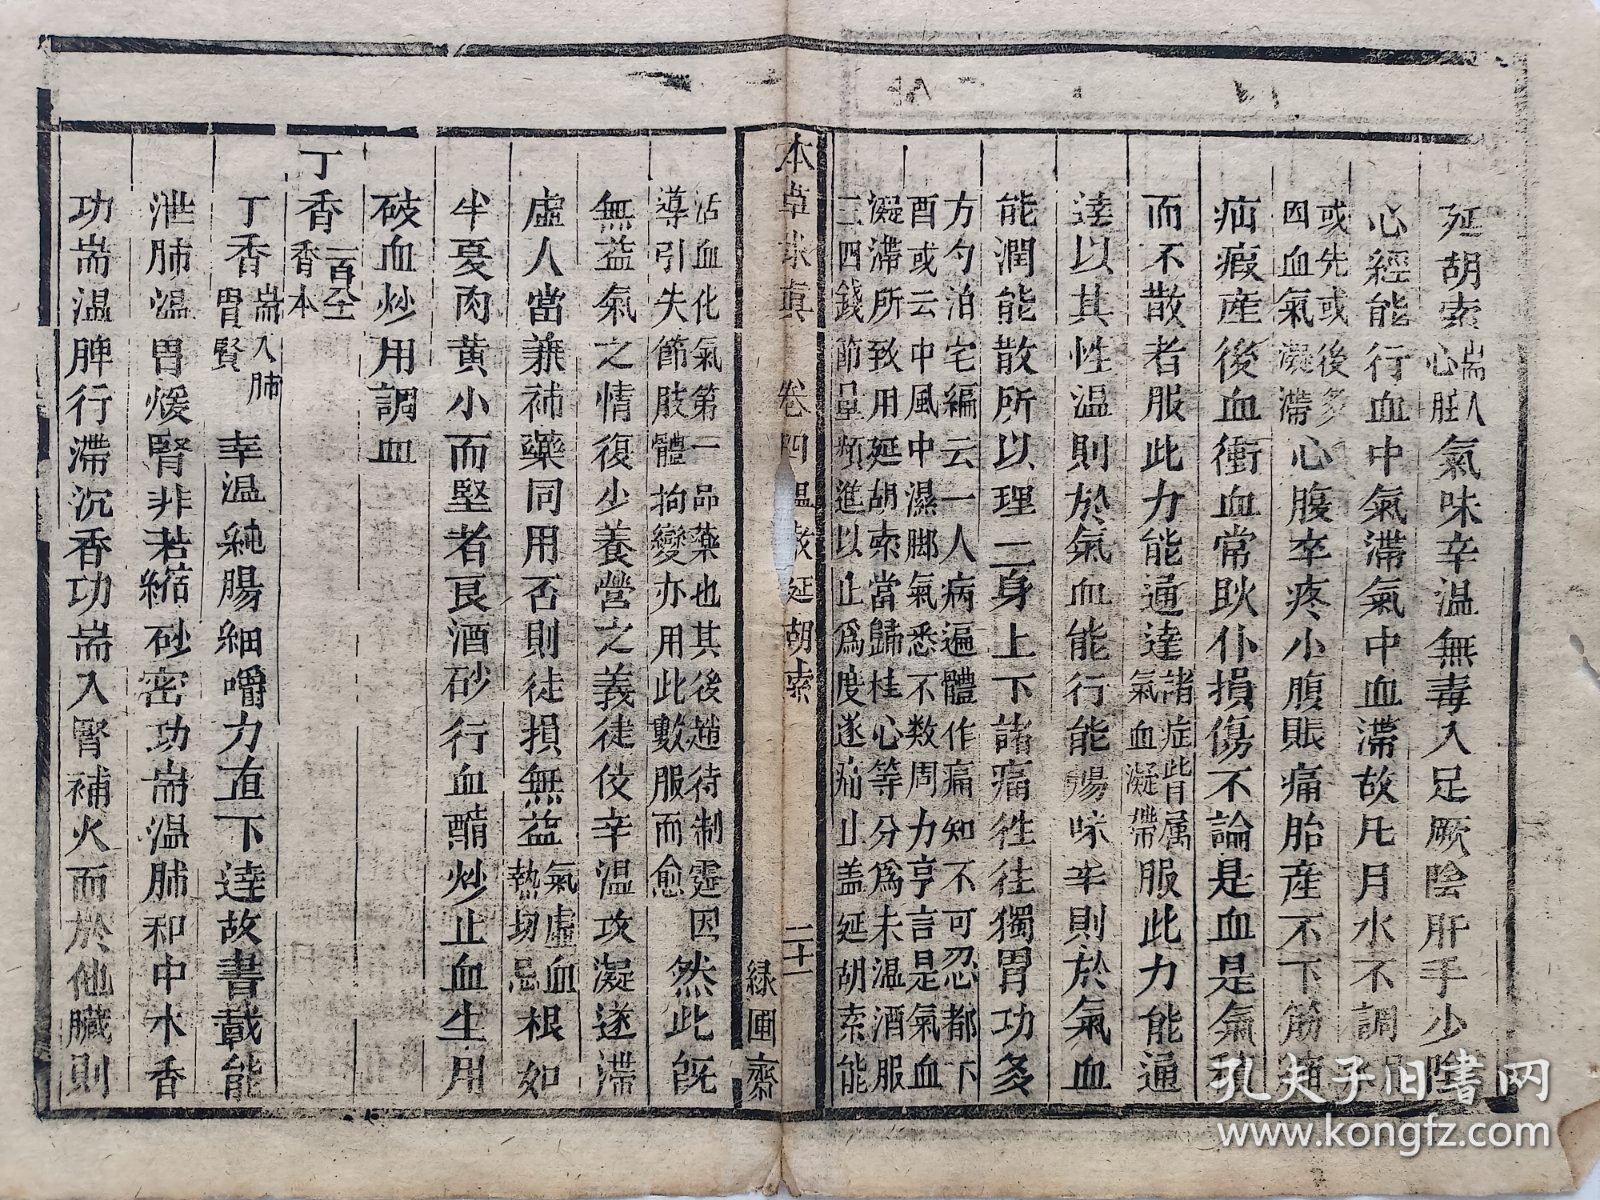 延胡索耑入心肝氣味辛温無毒入足厥陰肝手少陰
心經能行血中氣滯氣中血滯故凡月水不調
或先或後多四血氣凝滯心腹卒疼小腹脹痛胎產不下筋
疝瘕産後血衝血常耿仆損傷不論是血是氣
而不散者服此力能通達諸症皆属氣血凝帶服此力能通
達以其性温則於氣血能行能暢味辛則於氣血
能潤能散所以理一身上下諸痛徃往獨胃功多
方勺泊宅編云一人病遍體作痛知不可忍都下
酉或云中風中濕脚氣悉不数周力亨言是氣血
凝滯所致用延胡索當歸桂心等分為末温酒服
三四錢節量頻進以止為度遂痛止盖延胡索能
本草求真 卷四 温散 延胡索 二十一 緑圃齋
活血化氣第一品藥也其後趙待制霆因
導引失節肢體拘攣亦用此數服而愈然此既
無益氣之情復少養營之義徒仗辛温攻凝遂滯
虛人當兼補藥同用否則徒損無益氣虛血熱切忌根如
半夏肉黄小而堅者良酒砂行血醋炒止血生用
破血炒用調血
丁香一百仝香本
丁香耑入肺胃腎辛温純腸細嚼力直下達故書載能
泄肺温胃煖腎非若縮砂密功耑温肺和中木香
功耑温脾行滯沉香功耑入腎補火而於他臓則
孔夫子旧書网
www.kongfz.com